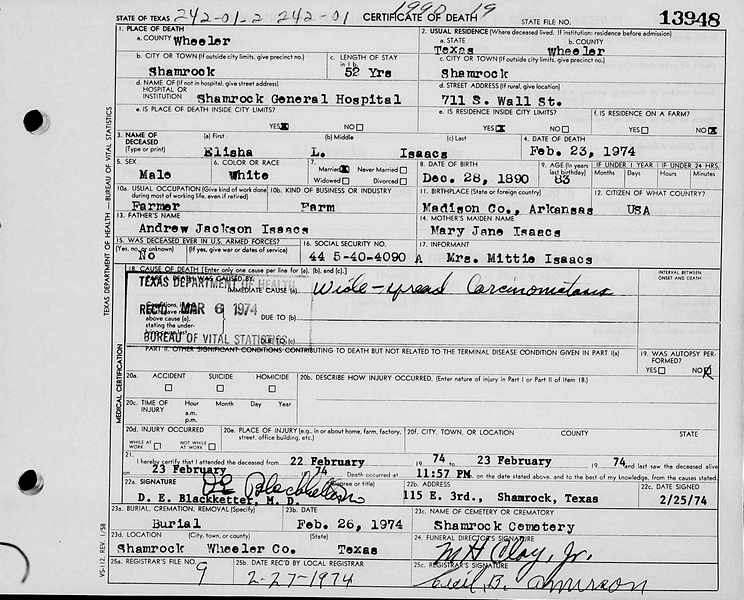 242-01-2 242-01 1990 19
STATE OF TEXAS CERTIFICATE OF DEATH STATE FILE NO. 13948
1. PLACE OF DEATH 2. USUAL RESIDENCE (Where deceased lived. If institution: residence before admission)
a. COUNTY Wheeler a. STATE Texas b. COUNTY Wheeler
b. CITY OR TOWN (If outside city limits, give precinct no.) c. LENGTH OF STAY in 1 b. c. CITY OR TOWN (If outside city limits, give precinct no.)
Shamrock 52 Yrs Shamrock
d. NAME OF (If not in hospital, give street address) HOSPITAL OR INSTITUTION Shamrock General Hospital d. STREET ADDRESS (If rural, give location) 711 S. Wall St.
e. IS PLACE OF DEATH INSIDE CITY LIMITS? e. IS RESIDENCE INSIDE CITY LIMITS? f. IS RESIDENCE ON A FARM?
YES X NO YES X NO YES NO X
3. NAME OF DECEASED (Type or print) (a) First (b) Middle (c) Last 4. DATE OF DEATH
Elisha L. Isaacs Feb. 23, 1974
5. SEX 6. COLOR OR RACE 7. Married X Never Married Widowed Divorced 8. DATE OF BIRTH 9. AGE (In years last birthday) IF UNDER 1 YEAR Months Days IF UNDER 24 HRS. Hours Minutes
Male White Dec. 28, 1890 83
10a. USUAL OCCUPATION (Give kind of work done during most of working life, even if retired) 10b. KIND OF BUSINESS OR INDUSTRY 11. BIRTHPLACE (State or foreign country) 12. CITIZEN OF WHAT COUNTRY?
Farmer Farm Madison Co., Arkansas USA
13. FATHER'S NAME 14. MOTHER'S MAIDEN NAME
Andrew Jackson Isaacs Mary Jane Isaacs
15. WAS DECEASED EVER IN U.S. ARMED FORCES? 16. SOCIAL SECURITY NO. 17. INFORMANT
(Yes, no, or unknown) (If yes, give war or dates of service)
No 44 5-40-4090 A Mrs. Mittie Isaacs
18. CAUSE OF DEATH [Enter only one cause per line for (a), (b), and (c).] INTERVAL BETWEEN ONSET AND DEATH
PART I. DEATH WAS CAUSED BY:
TEXAS DEPARTMENT OF HEALTH
IMMEDIATE CAUSE (a) Wide-spread Carcinomatosis
REC'D MAR 6 1974
Conditions, if any, which gave rise to above cause (a), stating the underlying cause last.
DUE TO (b)
BUREAU OF VITAL STATISTICS
DUE TO (c)
PART II. OTHER SIGNIFICANT CONDITIONS CONTRIBUTING TO DEATH BUT NOT RELATED TO THE TERMINAL DISEASE CONDITION GIVEN IN PART I(a) 19. WAS AUTOPSY PERFORMED?
YES NO X
20a. ACCIDENT SUICIDE HOMICIDE 20b. DESCRIBE HOW INJURY OCCURRED. (Enter nature of injury in Part I or Part II of item 18.)
20c. TIME OF INJURY Hour a.m. p.m. Month Day Year
20d. INJURY OCCURRED WHILE AT WORK NOT WHILE AT WORK 20e. PLACE OF INJURY (e.g., in or about home, farm, factory, street, office building, etc.) 20f. CITY, TOWN, OR LOCATION COUNTY STATE
21. I hereby certify that I attended the deceased from 22 February 19 74 to 23 February 19 74 and last saw the deceased alive
on 23 February 19 74 Death occurred at 11:57 PM m. on the date stated above, and to the best of my knowledge, from the causes stated.
22a. SIGNATURE DE Blackketter MD (Degree or title) 22b. ADDRESS 22c. DATE SIGNED
D. E. Blackketter, M. D. 115 E. 3rd., Shamrock, Texas 2/25/74
23a. BURIAL, CREMATION, REMOVAL (Specify) 23b. DATE 23c. NAME OF CEMETERY OR CREMATORY
Burial Feb. 26, 1974 Shamrock Cemetery
23d. LOCATION (City, town, or county) (State) 24. FUNERAL DIRECTOR'S SIGNATURE
Shamrock Wheeler Co. Texas M H Clay, Jr.
25a. REGISTRAR'S FILE NO. 25b. DATE REC'D BY LOCAL REGISTRAR 25c. REGISTRAR'S SIGNATURE
9 2-27-1974 Cecil B.
TEXAS DEPARTMENT OF HEALTH — BUREAU OF VITAL STATISTICS
MEDICAL CERTIFICATION
VS-112, REV. 1/58